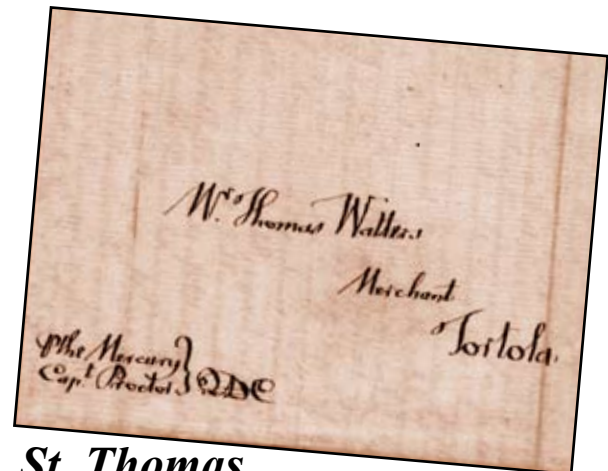 Mr. Thomas Walters
Merchant
Tortola.
⅌ the Mercury
Capt. Proctor } QDC
St. Thomas